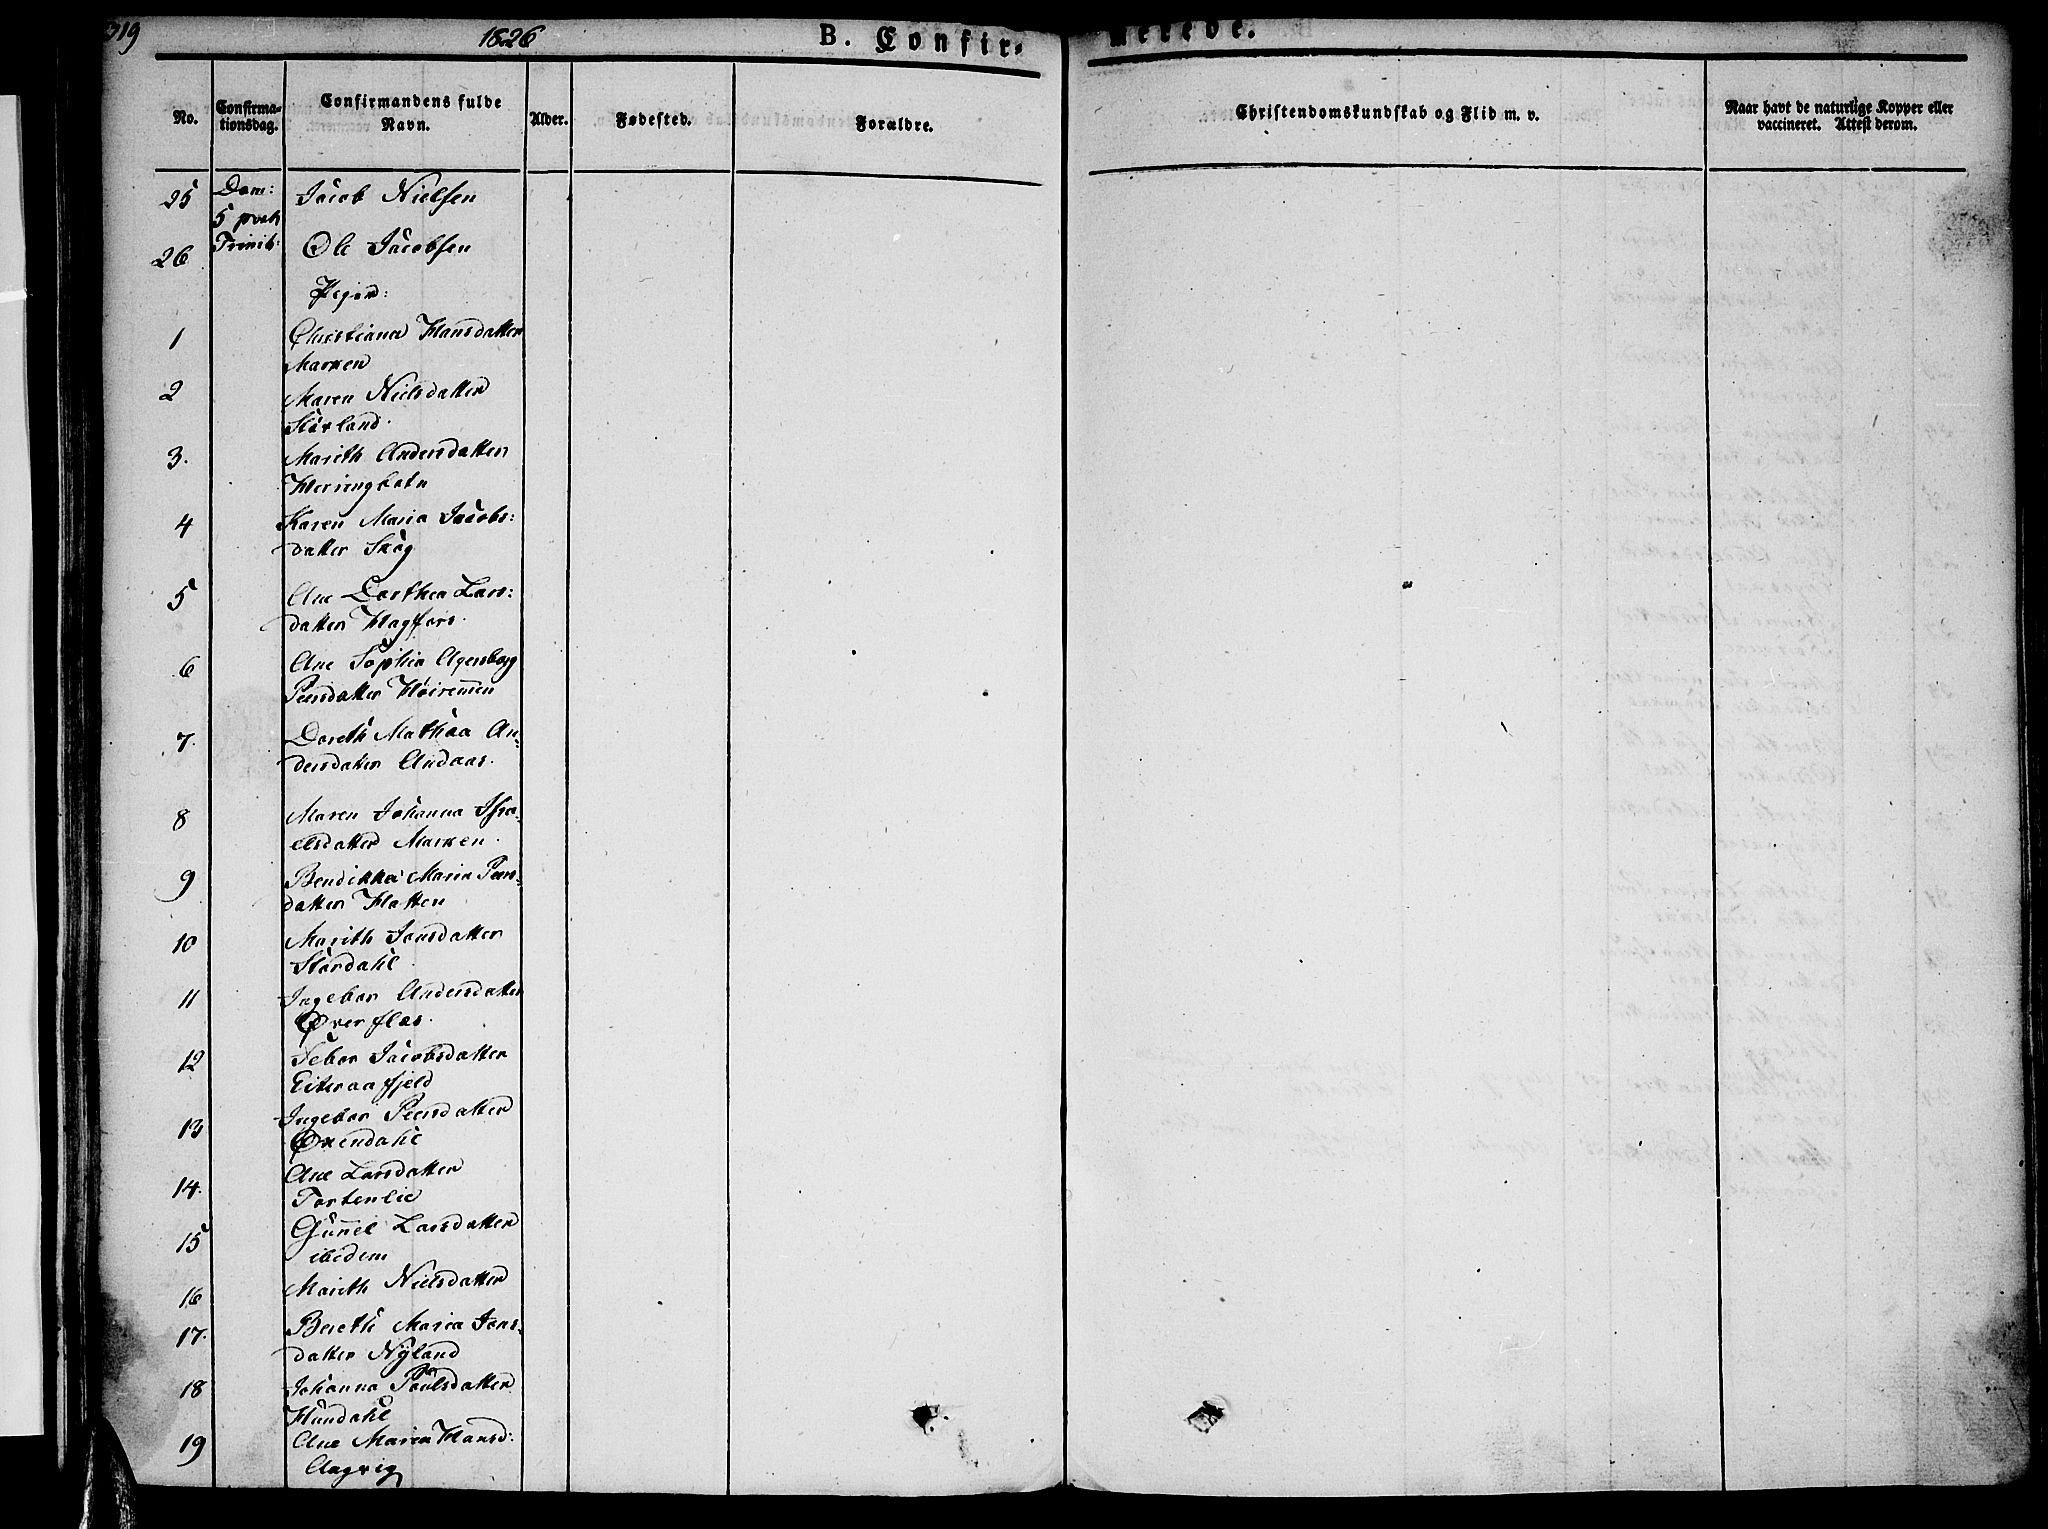 319 1826 B. Confir- merede.
No. Confirma-tionsdag. Confirmandens fulde Navn. Alder. Fødested. Forældre. Christendomskundskab og Flid m. v. Naar havt de naturlige Kopper eller vaccineret. Attest derom.
25 Dom: Jacob Nielsen
5 post
26 Trinit: Ole Jacobsen
Piger:
1 Christiana Hansdatter
Marken
2 Maren Nielsdatter
3. Marith Andersdatter
Herringbotn
4 Karen Maria Jacobs:
datter Skog
5 Ane Dorthea Lars:
datter Hagfors.
6 Ane Sophia
Peersdatter
7. Doreth Mathea An-
dersdatter Andaas.
8 Maren Johanna Isra-
elsdatter Marken.
9 Bendikka Maria Peers-
datter Hatten
10 Marith Jonsdatter
Stordahl
11 Ingebor Andersdatter
Øver flas.
12 Sebor Jacobsdatter
Eiteraafjeld
13 Ingebor Peersdatter
Øxendahl
14. Ane Larsdatter
Tortenlie
15 Gunnel Larsdatter
ibidem
16 Marith Nielsdatter
17. Bereth Maria Jons-
datter Nyland
18 Johanna Paulsdatter
Hundahl
19 Ane Maria Hansd:
Aagvig